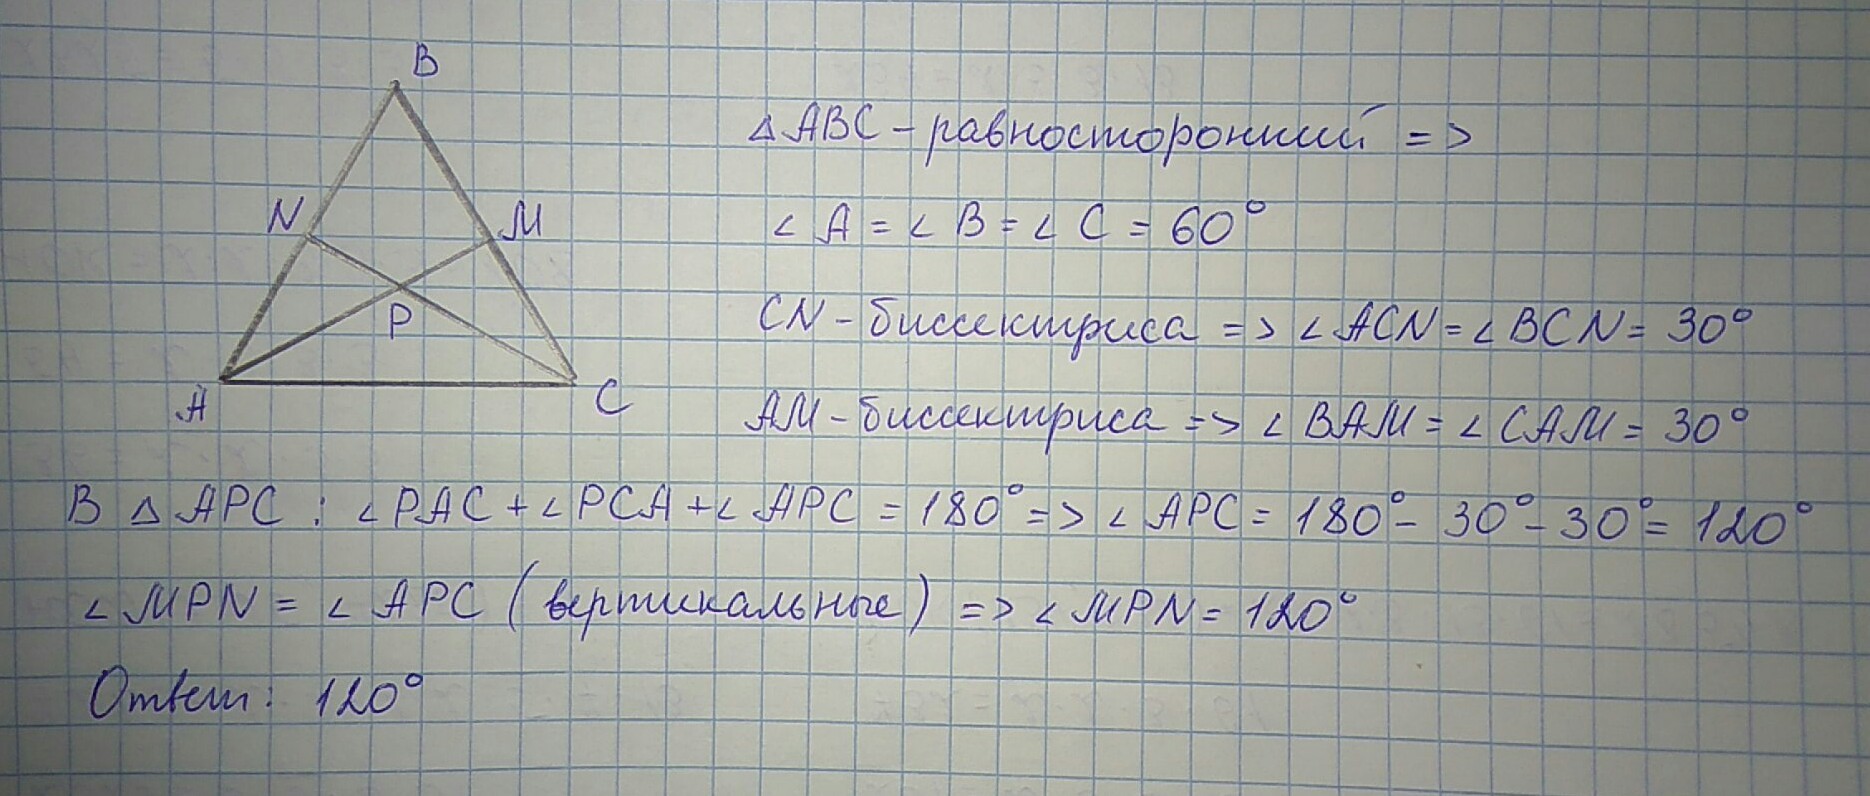 B
N
M
P
A
C
△ABC - равносторонний =>
∠A = ∠B = ∠C = 60°
CN - биссектриса => ∠ACN = ∠BCN = 30°
AM - биссектриса => ∠BAM = ∠CAM = 30°
В △APC : ∠PAC + ∠PCA + ∠APC = 180° => ∠APC = 180° - 30° - 30° = 120°
∠MPN = ∠APC (вертикальные) => ∠MPN = 120°
Ответ: 120°